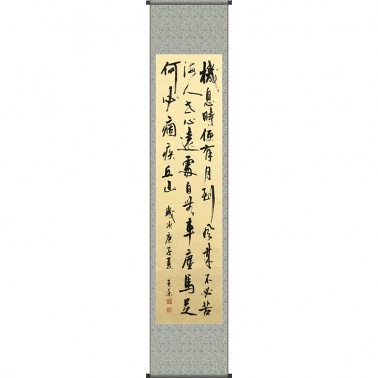 機息時便有月到風來不必苦
海人世心遠處自無車塵馬足
何必痼疾丘山 歲次庚子夏